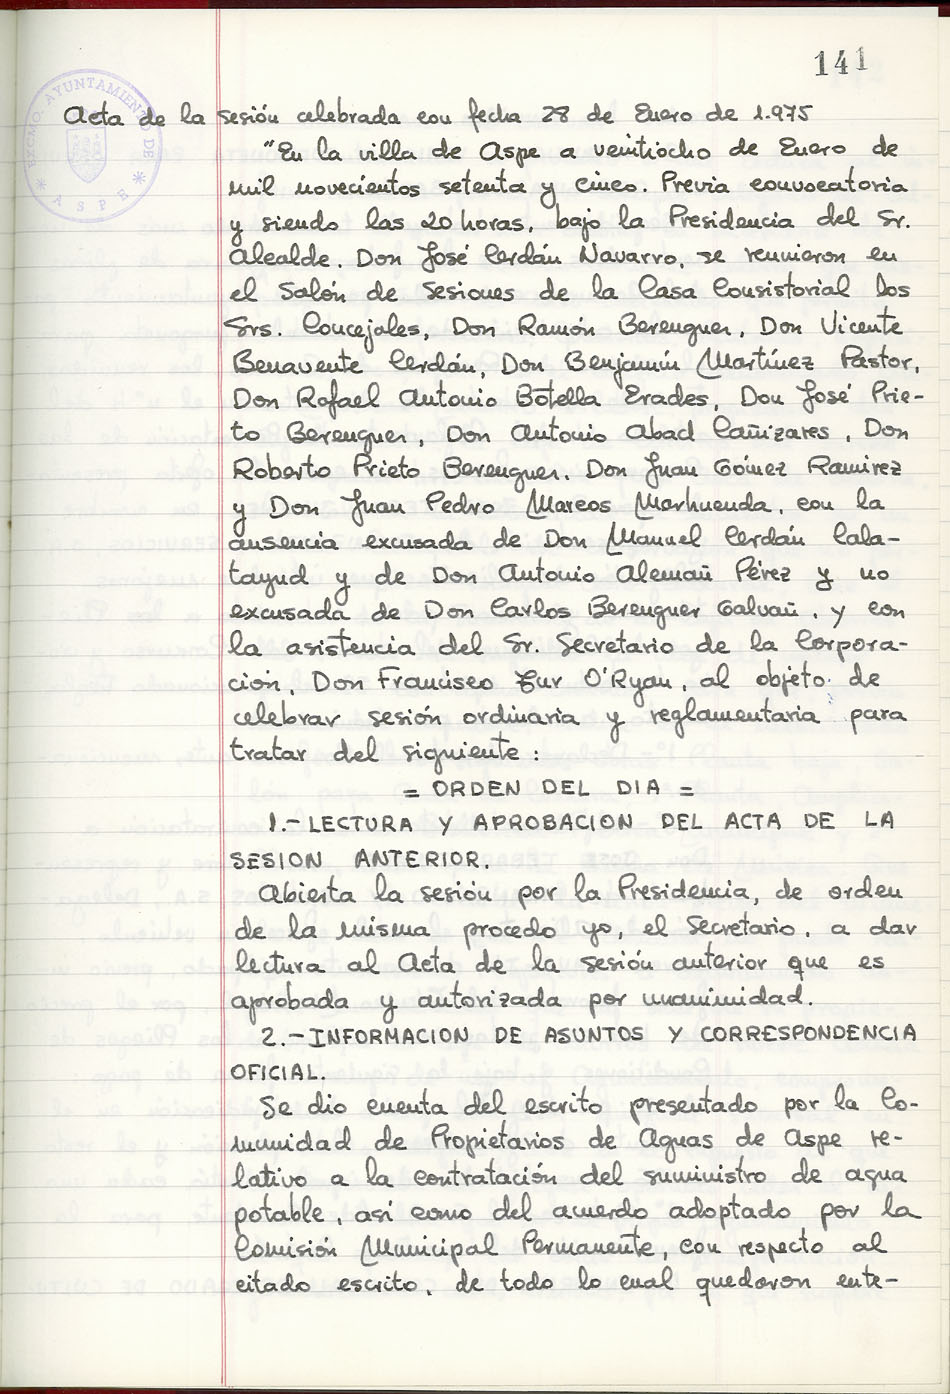 141
EXCMO. AYUNTAMIENTO DE
* ASPE *
Acta de la sesión celebrada con fecha 28 de Enero de 1.975
"En la villa de Aspe a veintiocho de Enero de
mil novecientos setenta y cinco. Previa convocatoria
y siendo las 20 horas, bajo la Presidencia del Sr.
Alcalde, Don José Cerdán Navarro, se reunieron en
el Salón de Sesiones de la Casa Consistorial los
Srs. Concejales, Don Ramón Berenguer, Don Vicente
Benavente Cerdán, Don Benjamín Martínez Pastor,
Don Rafael Antonio Botella Erades, Don José Prie-
to Berenguer, Don Antonio Abad Cañizares, Don
Roberto Prieto Berenguer, Don Juan Gómez Ramirez
y Don Juan Pedro Marcos Marhuenda, con la
ausencia excusada de Don Manuel Cerdán Cala-
tayud y de Don Antonio Alemañ Pérez y no
excusada de Don Carlos Berenguer Galvañ, y con
la asistencia del Sr. Secretario de la Corpora-
ción, Don Francisco Zur O'Ryan, al objeto de
celebrar sesión ordinaria y reglamentaria para
tratar del siguiente:
= ORDEN DEL DIA =
1.- LECTURA Y APROBACION DEL ACTA DE LA
SESION ANTERIOR.
Abierta la sesión por la Presidencia, de orden
de la misma procedo yo, el Secretario, a dar
lectura al Acta de la sesión anterior que es
aprobada y autorizada por unanimidad.
2.- INFORMACION DE ASUNTOS Y CORRESPONDENCIA
OFICIAL.
Se dio cuenta del escrito presentado por la Co-
munidad de Propietarios de Aguas de Aspe re-
lativo a la contratación del suministro de agua
potable, asi como del acuerdo adoptado por la
Comisión Municipal Permanente, con respecto al
citado escrito, de todo lo cual quedaron ente-